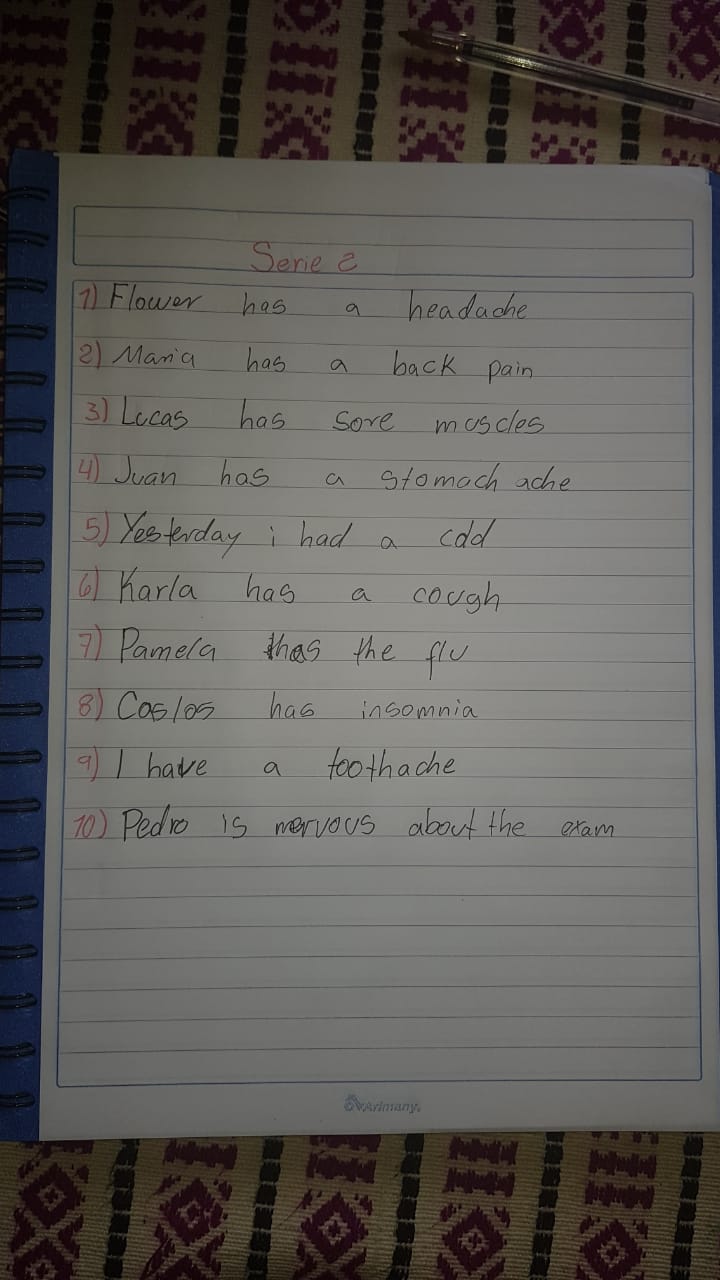 Serie 2
1) Flower has a headache
2) Maria has a back pain
3) Lucas has sore muscles
4) Juan has a stomach ache
5) Yesterday i had a cold
6) Karla has a cough
7) Pamela has the flu
8) Caslos has insomnia
9) I have a toothache
10) Pedro is nervous about the exam
Arimany.